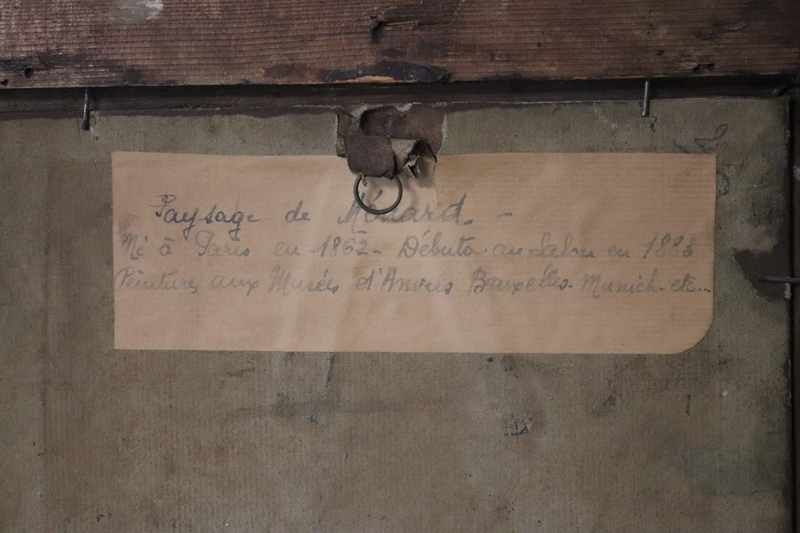 Paysage de Ménard. -
Né à Paris en 1862 - Débuta au Salon en 1883
Peintures aux Musées d'Anvers Bruxelles. Munich. etc...